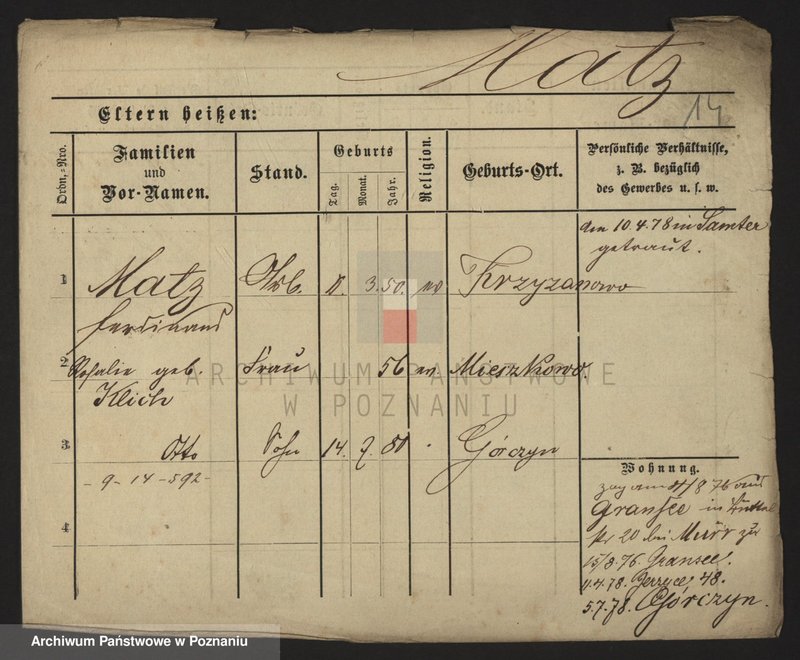 Matz
14
Eltern heißen:
Ordn.-Nro.
Familien
und
Vor-Namen.
Stand.
Geburts
Tag.
Monat.
Jahr.
Religion.
Geburts-Ort.
Persönliche Verhältnisse,
z. B. bezüglich
des Gewerbes u. s. w.
den 10.4.78 in Samter
getraut.
1
Matz
Ferdinand
Arb.
3. 50.
ev
Krzyzanowo
2
Rosalie geb.
Klich
Frau
56
ev.
Mieszkowo.
3
Otto
Sohn
14. 7. 80
Górczyn
- 9 - 14 - 592 -
4
Wohnung.
zog am /8 76 aus
Gransee in
Nr 20 bei Murr zu
15/8.76. Gransee.
11.4.78. Jerzyce 48.
5.7.78. Górczyn.
ARCHIWUM PAŃSTWOWE
W POZNANIU
Archiwum Państwowe w Poznaniu